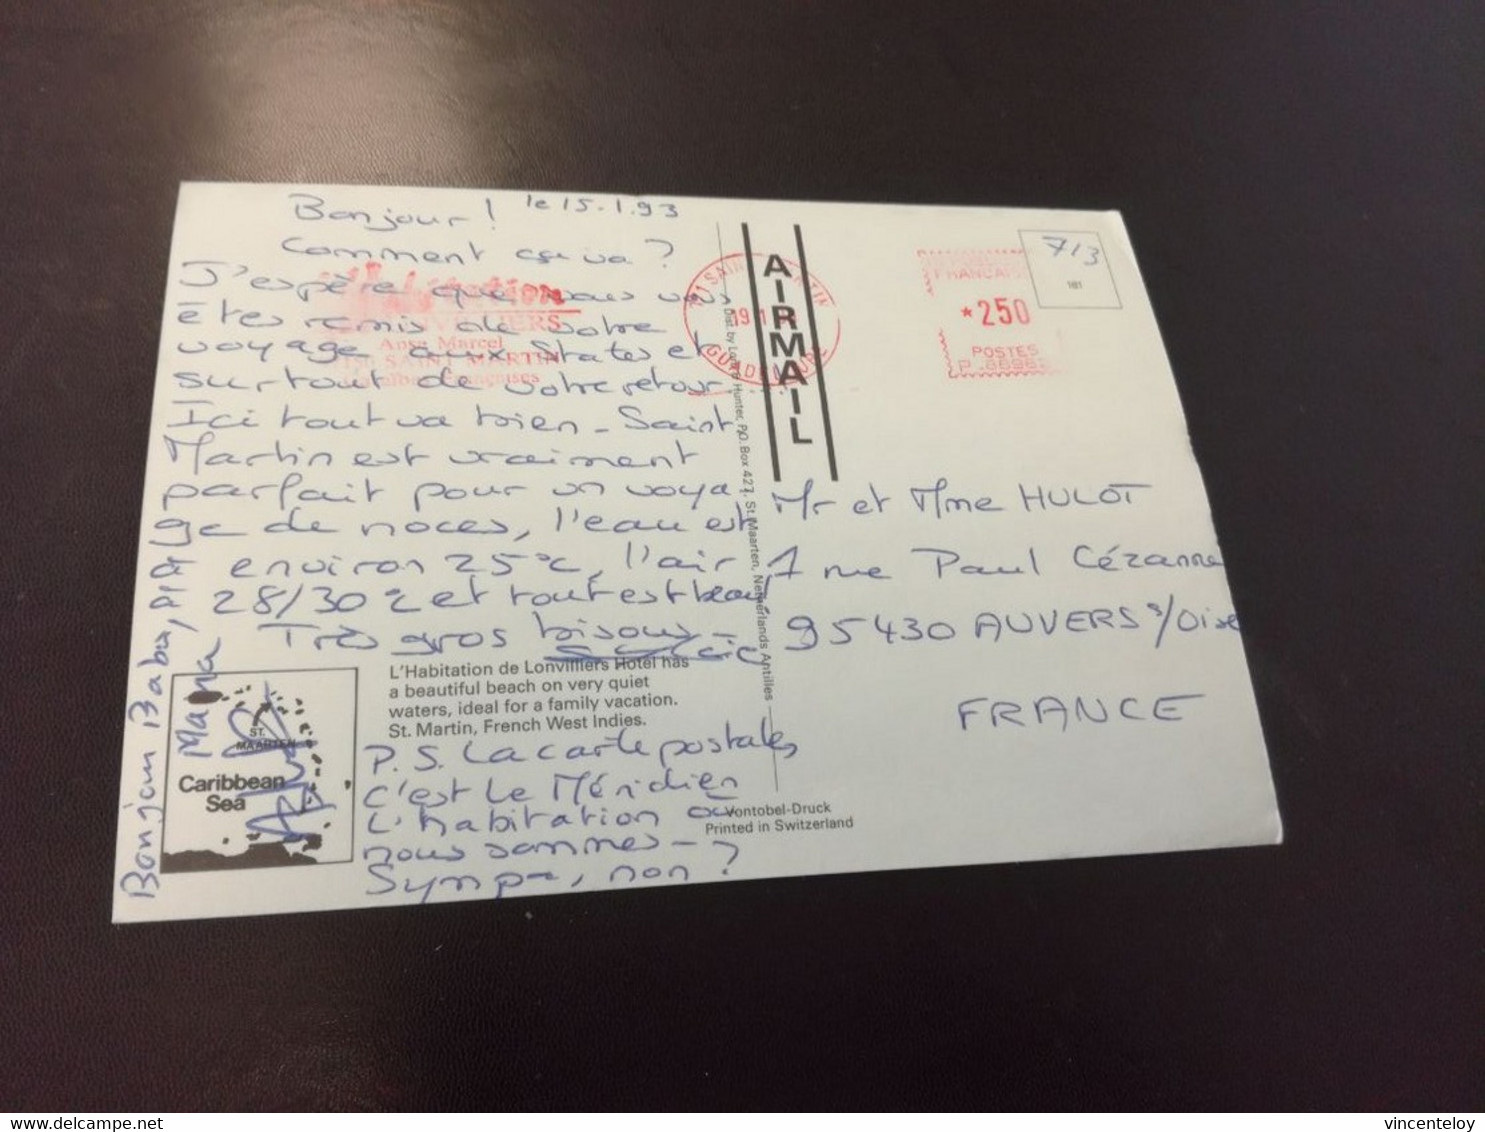 le 15.1.93
Bonjour !
Comment ça va ?
J'espère que vous vous
êtes remis de votre
voyage aux States et
surtout de votre retour.
Ici tout va bien - Saint
Martin est vraiment
parfait pour un voya
ge de noces, l'eau est
environ 25°c, l'air
28/30°c et tout est beau
Très gros bisous -
Sylvie
Bonjour Babou, à
Mana
L'Habitation de Lonvilliers Hotel has
a beautiful beach on very quiet
waters, ideal for a family vacation.
St. Martin, French West Indies.
P.S. La carte postale,
c'est le Méridien
L'habitation où
nous sommes -
Sympa, non ?
ST.
MAARTEN
Caribbean
Sea
Anse Marcel
SAINT MARTIN
Françaises
SAINT MARTIN
19 1
GUADELOUPE
AIRMAIL
Hunter, P.O. Box 427, St. Maarten, Netherlands Antilles
Vontobel-Druck
Printed in Switzerland
FRANÇAISE
*250
POSTES
P.8696
713
181
Mr et Mme HULOT
1 rue Paul Cézanne
95430 AUVERS s/Oise
FRANCE
vincenteloy